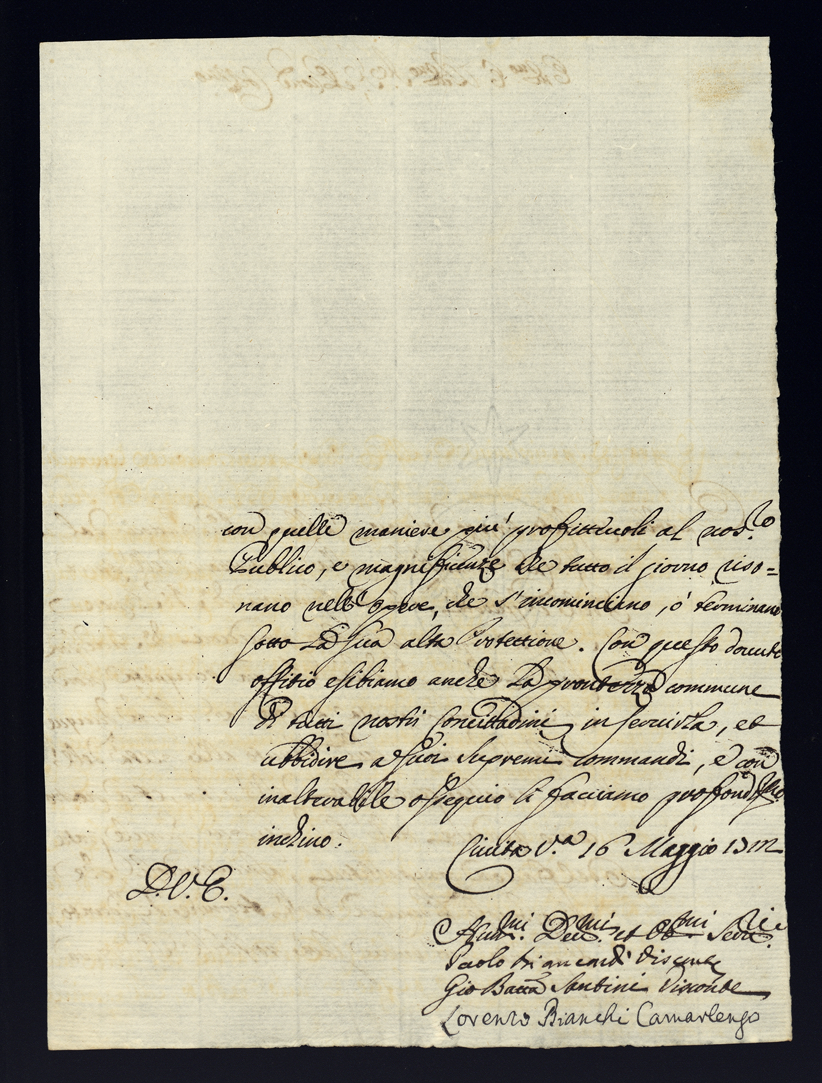 con quelle maniere più profittevoli al nos.ro
Publico, e magnificenze che tutto il giorno riso=
nano nell'opere, che s'incominciano, ò terminano
sotto La sua alta Protettione. Con questo dovuto
offitio esibiamo anche La prontezza commune
di tutti nostri Concittadini in servirla, et
ubbidire a suoi supremi commandi, e con
inalterabile ossequio li facciamo profondiss.mo
inchino.
Civita V.a 16 Maggio
D.V.E.
Dev.mi et Obb.mi Serv.ri
Paolo Viscente
Gio Batta Santini Visconte
Lorenzo Bianchi Camarlengo